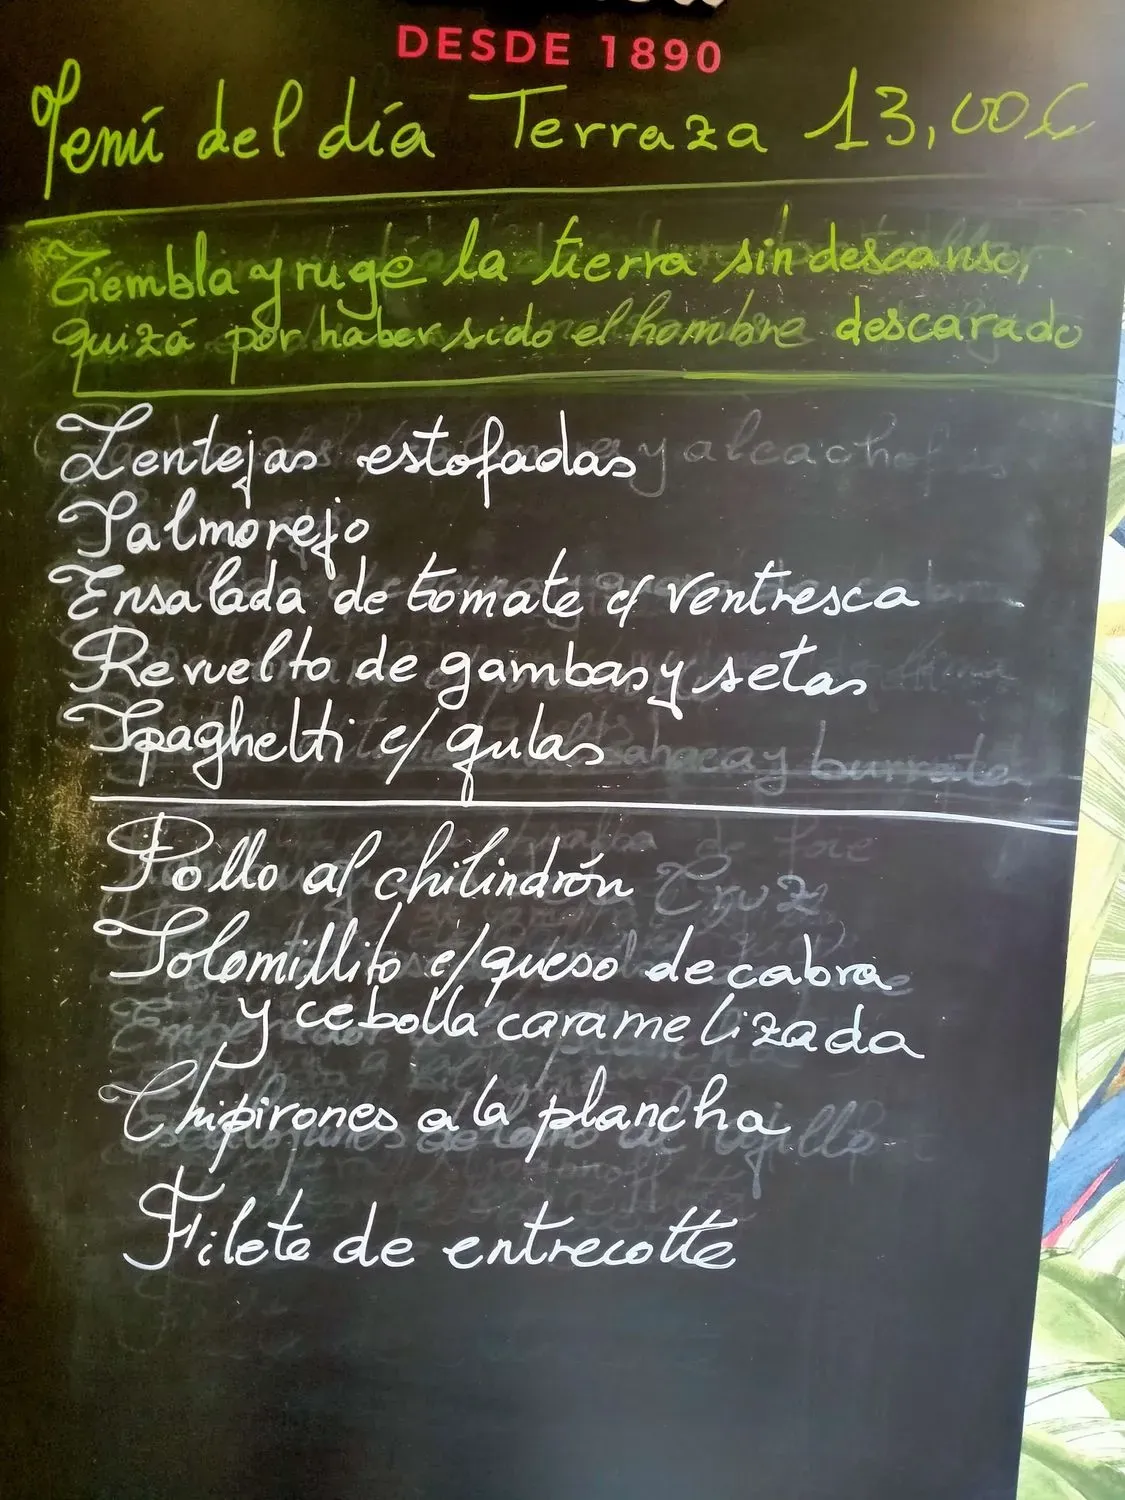 DESDE 1890
Menú del día Terraza 13,00€
Tiembla y ruge la tierra sin descanso,
quizá por haber sido el hombre descarado
Lentejas estofadas
Salmorejo
Ensalada de tomate c/ ventresca
Revuelto de gambas y setas
Spaghetti c/ gulas
Pollo al chilindrón
Solomillito c/ queso de cabra
y cebolla caramelizada
Chipirones a la plancha
Filete de entrecotte